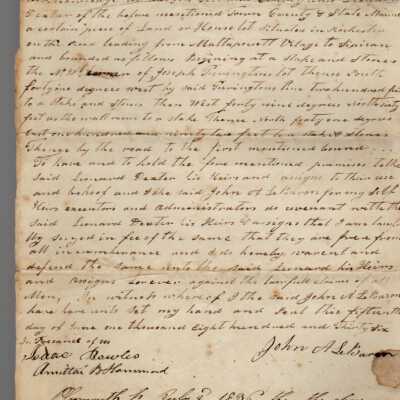 Dexter of the before mentioned Town County & State Namely
a certain piece of Land or House lot Situated in Rochester
on the Road leading from Mattapoisett Village to
and bounded as follows Begining at a Stake and Stones
the corner of Joseph lot thence South
forty one degrees west by said line two hundred five
to a Stake and Stones then West forty nine degrees North sixty
feet as the wall runs to a Stake Thence North forty one degrees
East one hundred and ninety two feet to a stake & Stones
Thence by the road to the first mentioned bound
To have and to hold the fore mentioned premises to the
said Leonard Dexter his Heirs and assigns to their use
and behoof and I the said John A LeBaron for my Self
Heirs executors and administrators do covenant with the
said Leonard Dexter his Heirs & assigns that I am lawfu
lly seized in fee of the same that they are free from
all incumberance and I do hereby warent and
defend the same unto the said Leonard his Heirs
and assigns forever against the lawfull claims of all
Men, In witness whereof I the said John A LeBaron
have here unto Set my hand and Seal this fifteenth
day of June one thousand Eight hundred and thirty Six
In Presence of us
Isaac Bowles
John A LeBaron
Amittai B Hammond
Plymouth